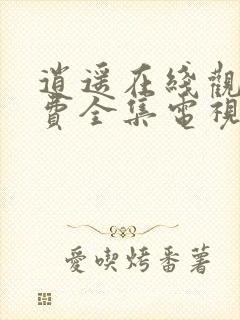 逍遥在綫觀
費全集電視
愛喫烤番薯